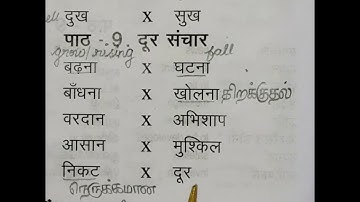 दुख x सुख
पाठ - 9. दूर संचार
grow/rising fall
बढ़ना x घटना
बाँधना x खोलना திறக்குதல்
वरदान x अभिशाप
आसान x मुश्किल
निकट x दूर
நெருக்கமான